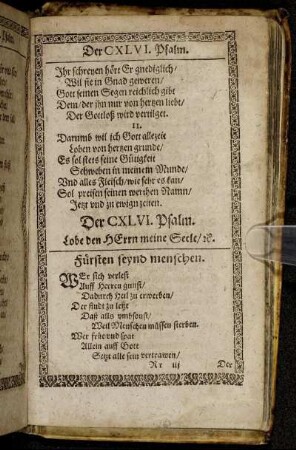 Der CXLVI. Psalm.
Ihr schreyen hört Er gnediglich/
Wil sie in Gnad geweren/
Gott seinen Segen reichlich gibt
Dem/der ihn nur von hertzen liebt/
Der Gottloß wird vertilget.
11.
Darumb wil ich Gott allezeit
Loben von hertzen grunde/
Es sol stets seine Gütigkeit
Schweben in meinem Munde/
Vnd alles Fleisch/wie sehr es kan/
Sol preisen seinen werthen Namn/
Jetzt vnd zu ewign zeiten.
Der CXLVI. Psalm.
Lobe den HErrn meine Seele/ ꝛc.
Fürsten seynd menschen.
WEr sich verlest
Auff Herren gunst/
Dadurch Heil zu erwerben/
Der findt zu letzt
Daß alls vmbsonst/
Weil Menschen müssen sterben.
Wer früe vnd spat
Allein auff Gott
Setzt alle sein vertrawen/
Rr iij
Der